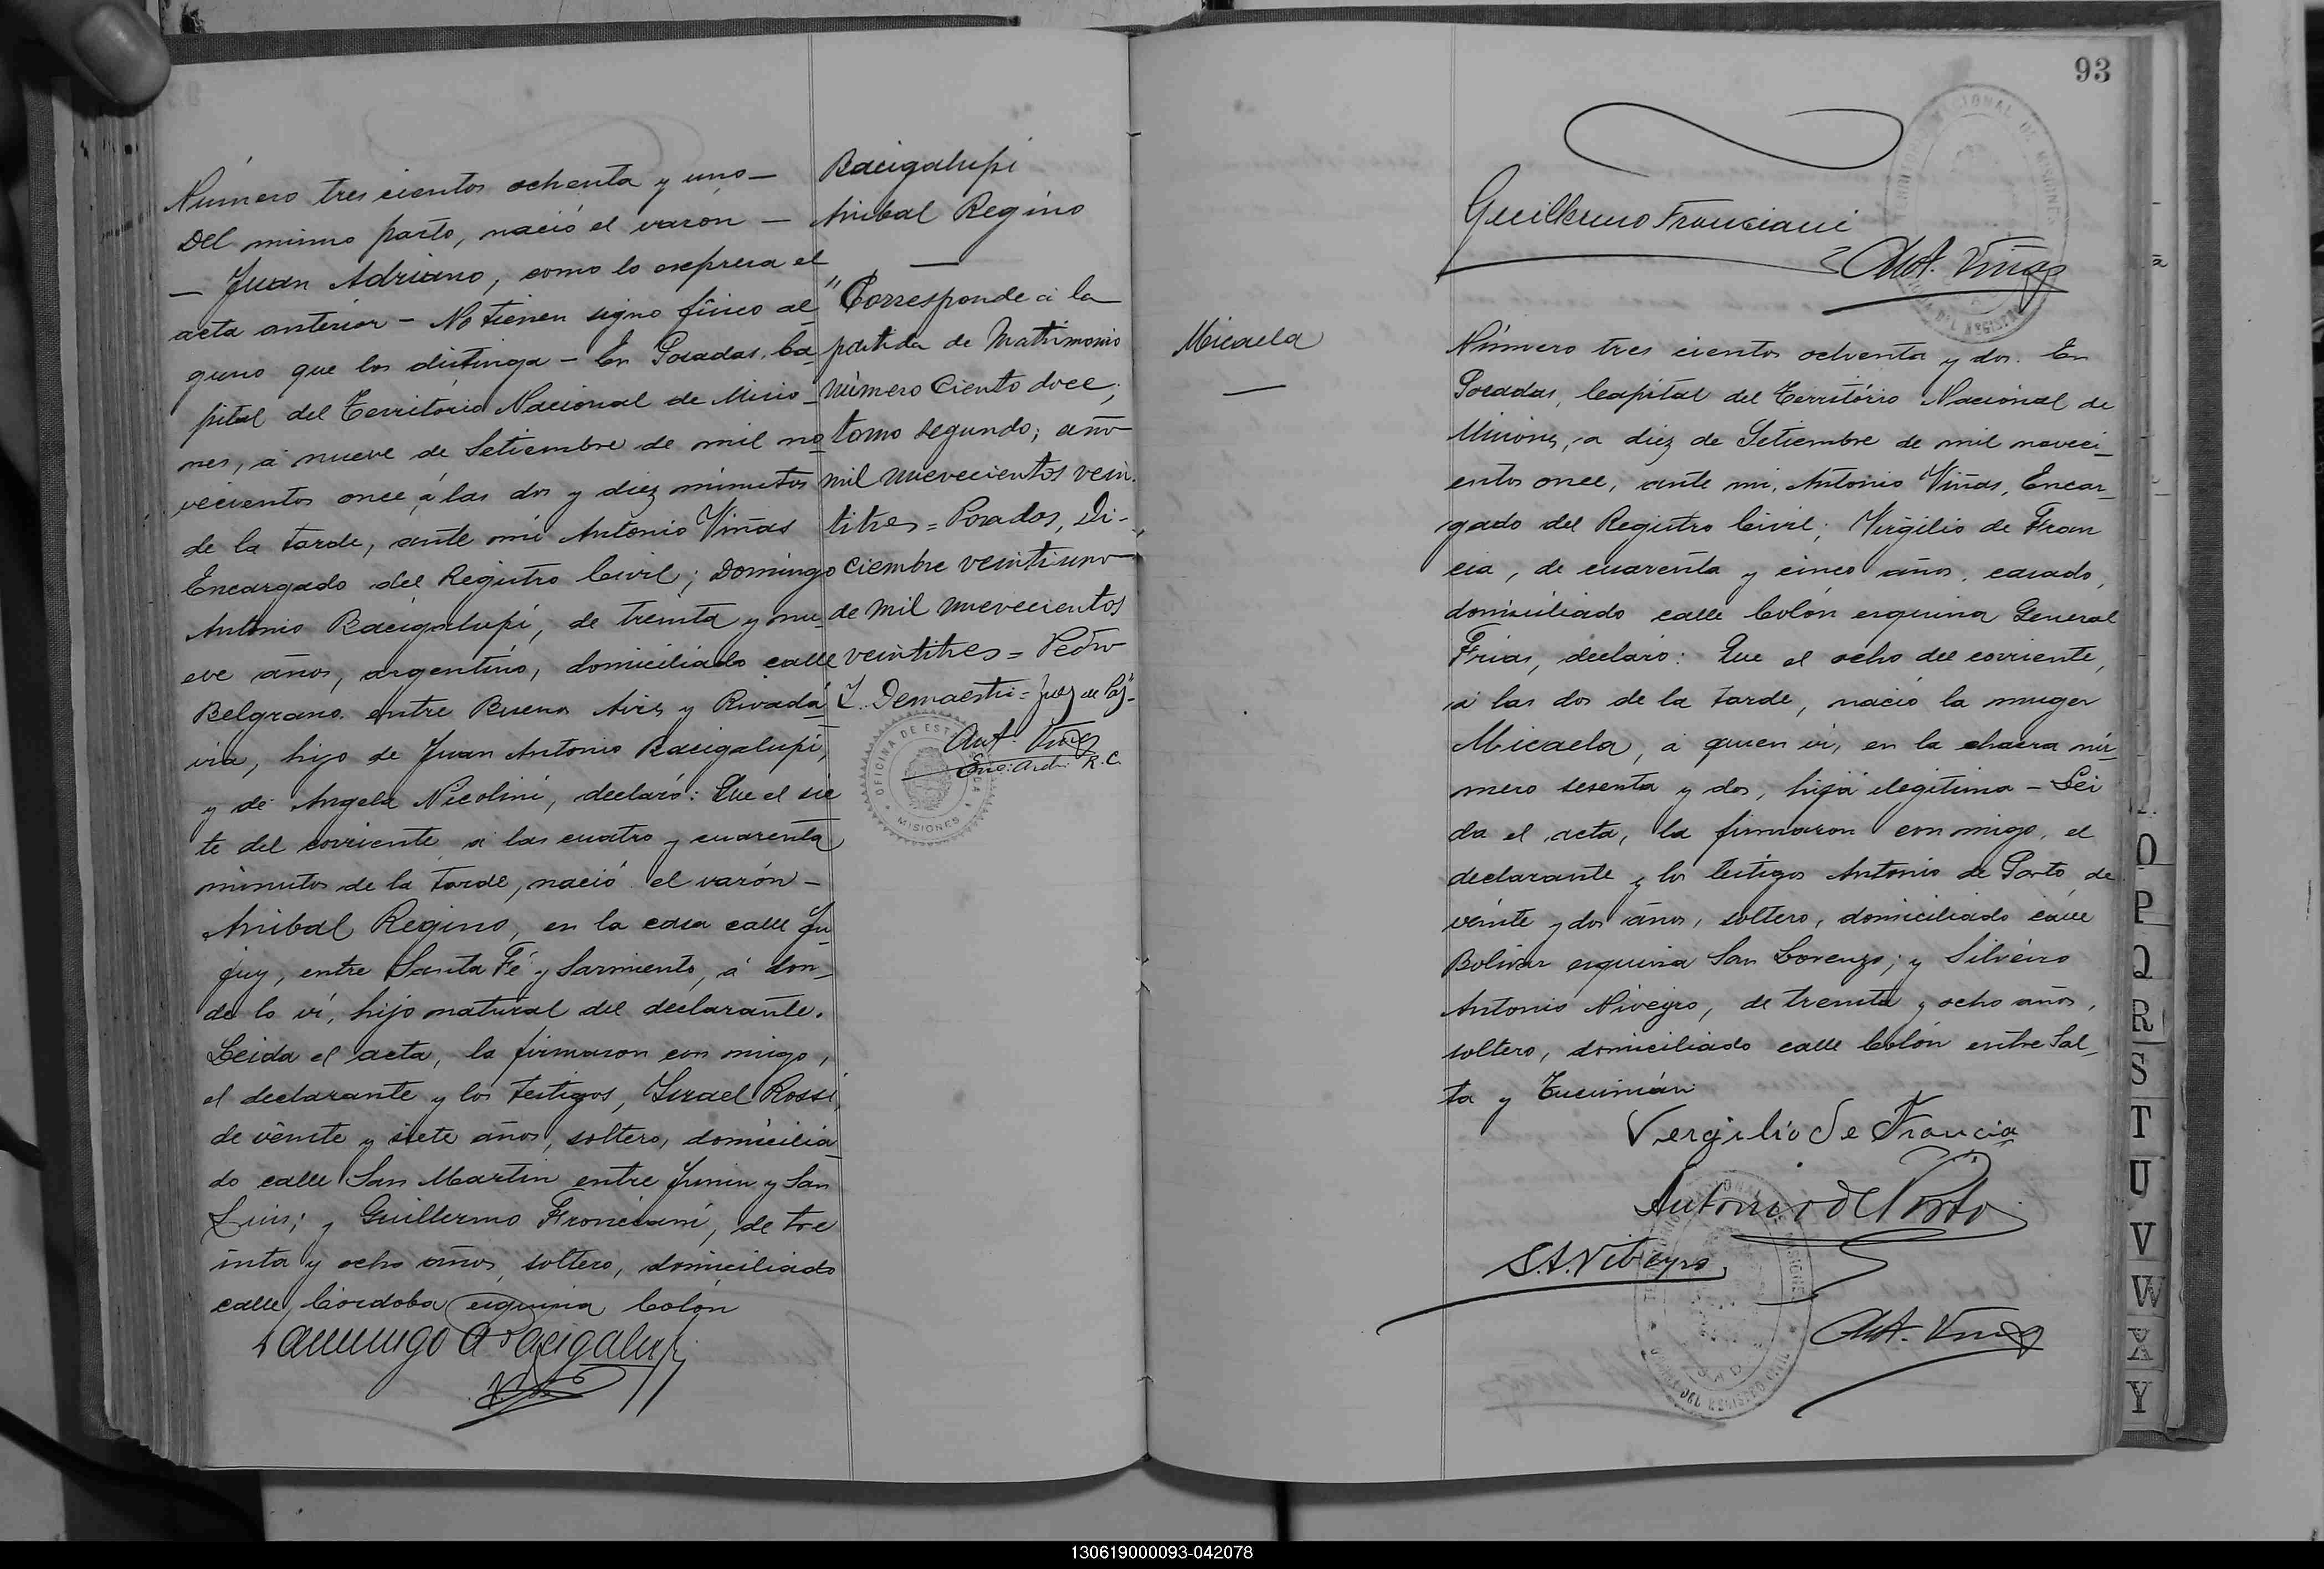 Número tres cientos ochenta y uno—
Del mismo parto, nació el varon —
— Juan Adriano, como lo expresa el
acta anterior – No tienen signo fisico al-
guno que los distinga – En Posadas, Ca-
pital del Território Nacional de Misio-
nes, á nueve de Setiembre de mil no-
vecientos once, á las dos y diez minutos
de la tarde, ante mí Antonio Viñas
Encargado del Registro Civil; Domingo
Antonio Bacigalupi, de treinta y nu-
eve años, argentino, domiciliado calle
Belgrano entre Buenos Aires y Rivada-
via, hijo de Juan Antonio Bacigalupi,
y de Angela Nicolini, declaró: Que el sie-
te del corriente á las cuatro y cuarenta
minutos de la tarde, nació el varón –
Anibal Regino, en la casa calle Ju-
juy, entre Santa Fé y Sarmiento, á don-
de lo ví, hijo natural del declarante.
Leida el acta, la firmaron con migo,
el declarante y los testigos, Israel Rossi,
de veinte y siete años, soltero, domicilia-
do calle San Martin entre Junin y San
Luis; y Guillermo Fronciani, de tre
inta y ocho años, soltero, domiciliado
calle Córdoba esquina Colón
Domingo A Bacigalupi
Bacigalupi
Anibal Regino
"Corresponde á la
partida de Matrimonio
número Ciento doce;
tomo segundo; año
mil nuevecientos vein-
titres = Posadas, Di-
ciembre veintiuno
de mil nuevecientos
veintitres = Pedro
I. Demaestri = Juez de Paz"-
Ant. Viñas
Enc: Arch: R. C.
OFICINA DE ESTADISTICA
MISIONES
93
Guillermo Franciani
Ant. Viñas
Micaela
Número tres cientos ochenta y dos. En
Posadas, Capital del Território Nacional de
Misiones, a diez de Setiembre de mil noveci-
entos once, ante mi, Antonio Viñas, Encar-
gado del Registro Civil; Virgilio de Fran
cia, de cuarenta y cinco años, casado,
domiciliado calle Colón esquina General
Frias, declaró: Que el ocho del corriente,
á las dos de la tarde, nació la muger
Micaela, á quien ví, en la chacra nú-
mero sesenta y dos, hija ilegitima – Lei
da el acta, la firmaron con migo, el
declarante y los testigos Antonio de Porto, de
veinte y dos años, soltero, domiciliado calle
Bolivar esquina San Lorenzo; y Silveiro
Antonio Niveyro, de treinta y ocho años,
soltero, domiciliado calle Colón entre Sal-
ta y Tucumán
Vergilio de Francia
Antonio de Porto
S.A. Niveyro
Ant. Viñas
O
P
Q
R
S
T
U
V
W
X
Y
130619000093-042078